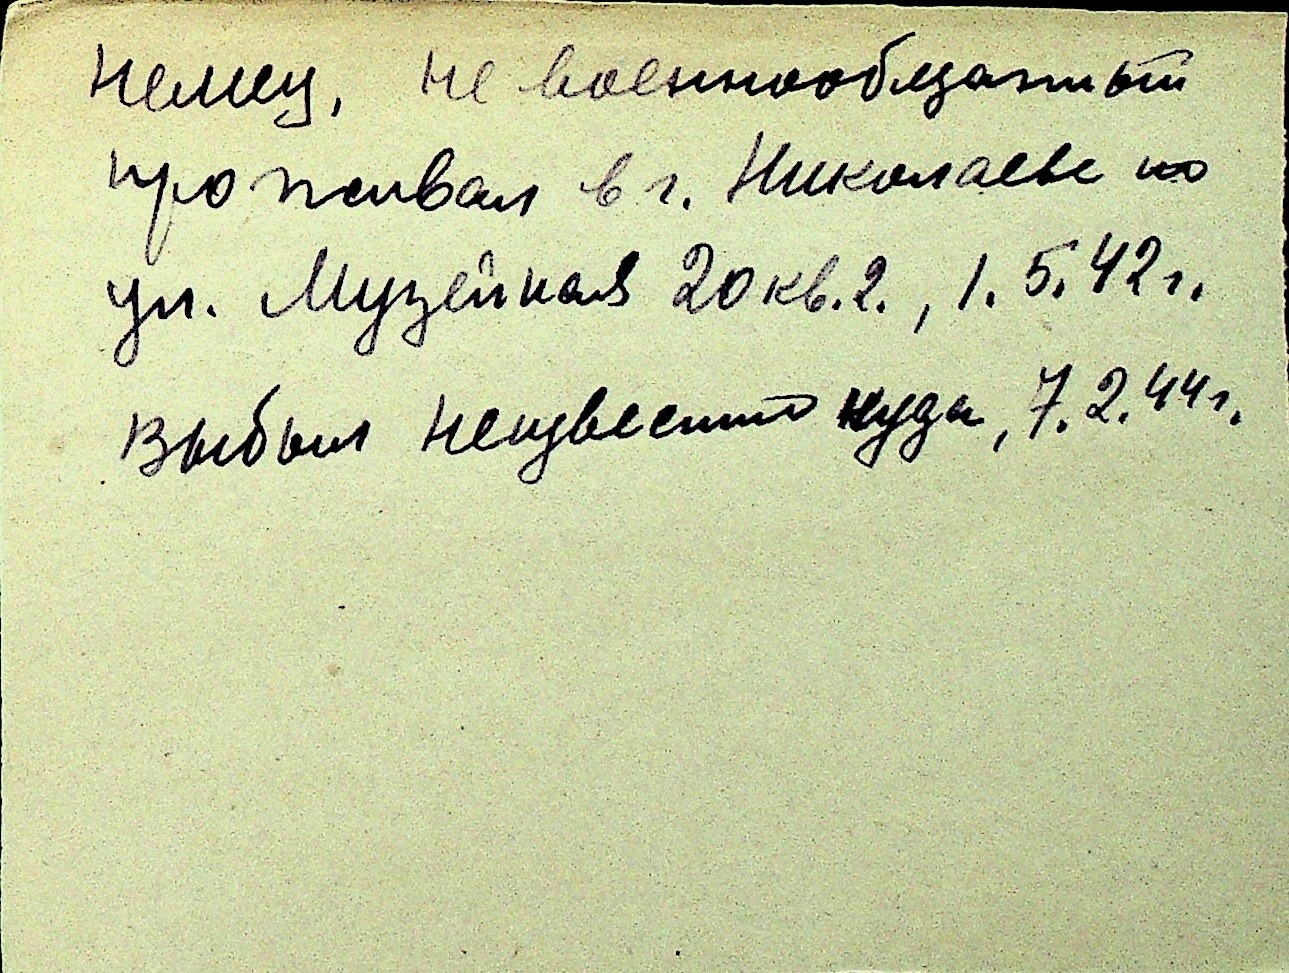 немец, не военнообязаный
проживал в г. Николаеве по
ул. Музейная 20 кв. 2., 1.5.42 г.
Выбыл неизвестно куда, 7.2.44 г.